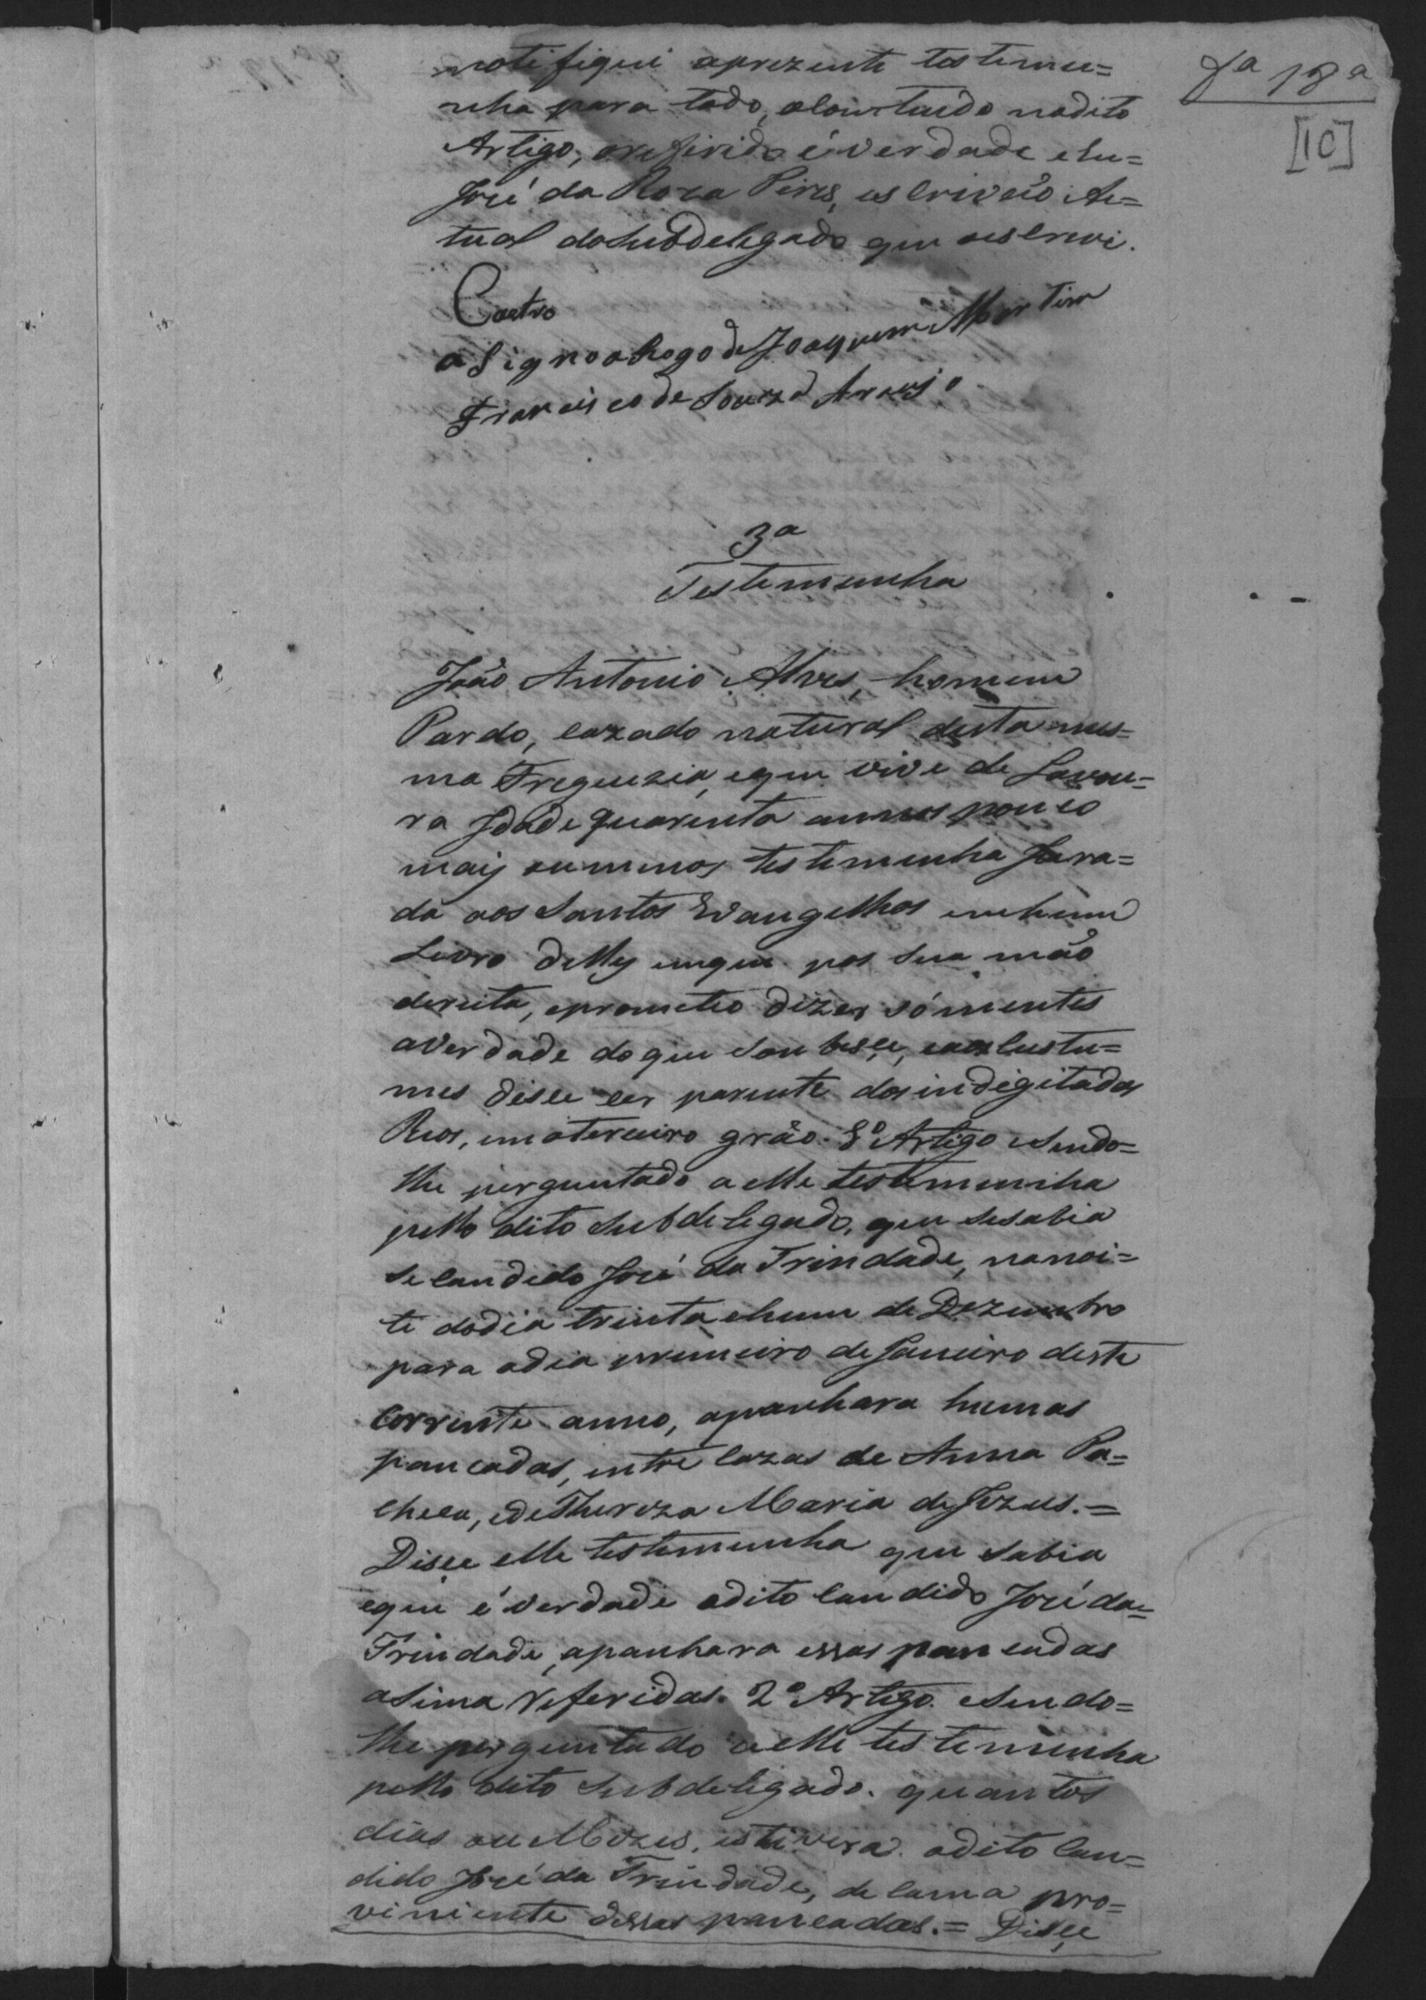 fª 18ª
[10]
notefiquei aprezente testemu=
nha para todo, o contiudo no dito
Artigo, o referido é verdade e Eu=
José da Roza Pires, escrivão Ac=
tual do Subdelegado que o escrevi.
Castro
a Signo a Rogo de Joaquim Martins
Francisco de Souza Araujo
3ª
Testemunha
João Antonio Alves, homem
Pardo, cazado natural desta mes=
ma Freguezia, e que vive de Lavou=
ra Idade quarenta annos pouco
mais ou menos testemunha Jura=
da aos Santos Evangelhos em hum
Livro delles em que pos sua mão
dereita, e prometeo dizer sómentes
a verdade do que soubesse, e aos custu=
mes disse ser parente dos indigitados
Reos, em o terceiro gráo. 1º Artigo e sendo=
lhe perguntado a elle testemunha
pello dito Subdelegado, que se sabia
se Candido José da Trindade, na noi=
te do dia trinta e hum de Dezembro
para o dia primeiro de Janeiro deste
corrente anno, apanhara humas
pancadas, entre cazas de Anna Pa=
checa, e de Thereza Maria de Jezus.=
Disse elle testemunha que sabia
e que é verdade o dito Candido José da=
Trindade, apanhara essas pancadas
asima referidas. 2º Artigo. e sendo=
lhe perguntado a elle testemunha
pello dito Subdelegado. quantos
dias ou Mezes, estivera o dito Can=
dido José da Trindade, de cama pro=
viniente dessas pancadas.= Disse